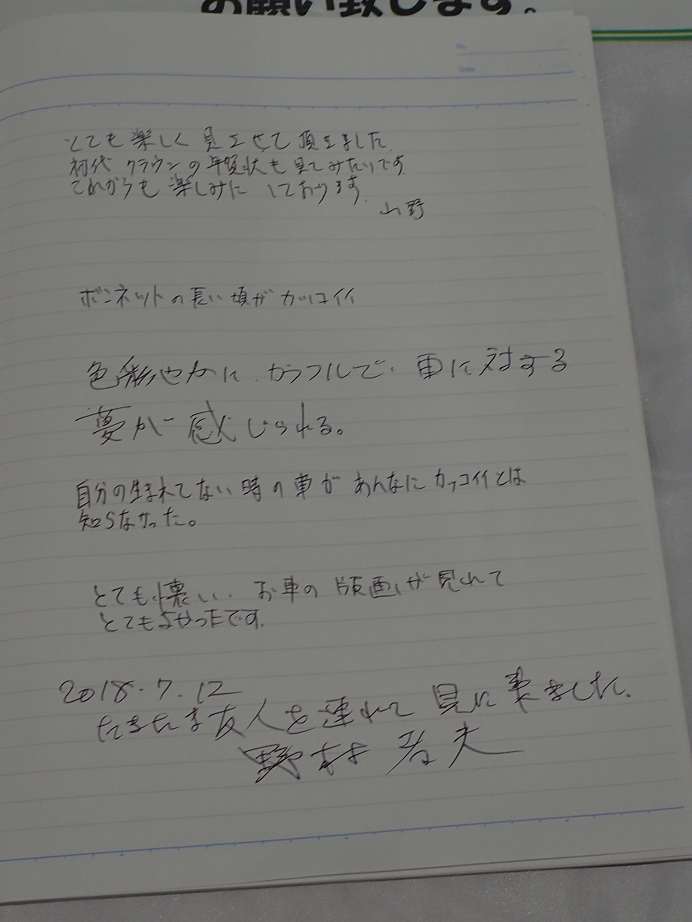 お願い致します。
とても楽しく見させて頂きました
初代クラウンの年賀状も見てみたいです
これからも楽しみにしております。
山野
ボンネットの長い頃がカッコイイ
色彩やかに、カラフルで、車に対する
夢が感じられる。
自分の生まれてない時の車があんなにカッコイイとは
知らなかった。
とても懐い、お車の版画が見れて
とてもよかったです。
2018.7.12
たまたま友人を連れて見に来ました。
野村 夫